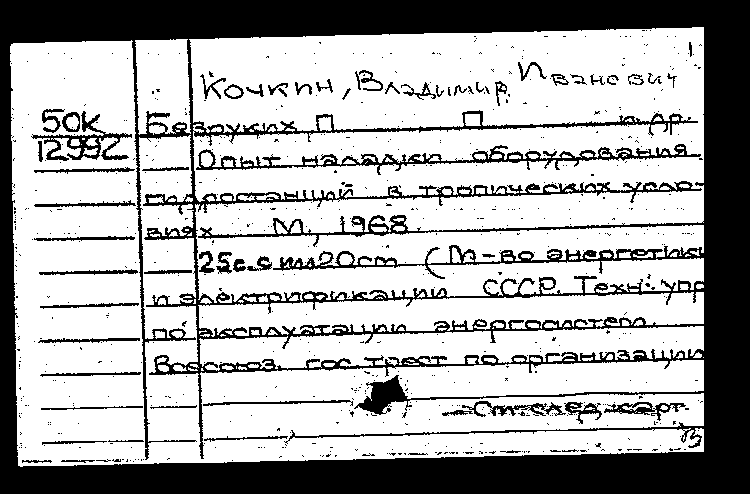 1
Кочкин, Владимир Иванович
50К Безруких П П и др.
12992 Опыт наладки оборудования
гидростанций в тропических усло-
виях М., 1968
25с. с илл 20cm (М-во энергетики
и электрификации СССР. Техн. упр
по эксплуатации энергосистем.
Всесоюз. гос трест по организации
См. след. карт.